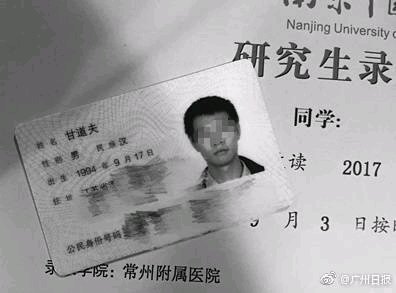 Nanjing University of
研究生录
同学:
读 2017
姓名 甘道夫
性别 男 民族 汉
出生 1994 年 9 月 17 日
住址
公民身份号码
9 月 3 日按
学院: 常州附属医院
@广州日报